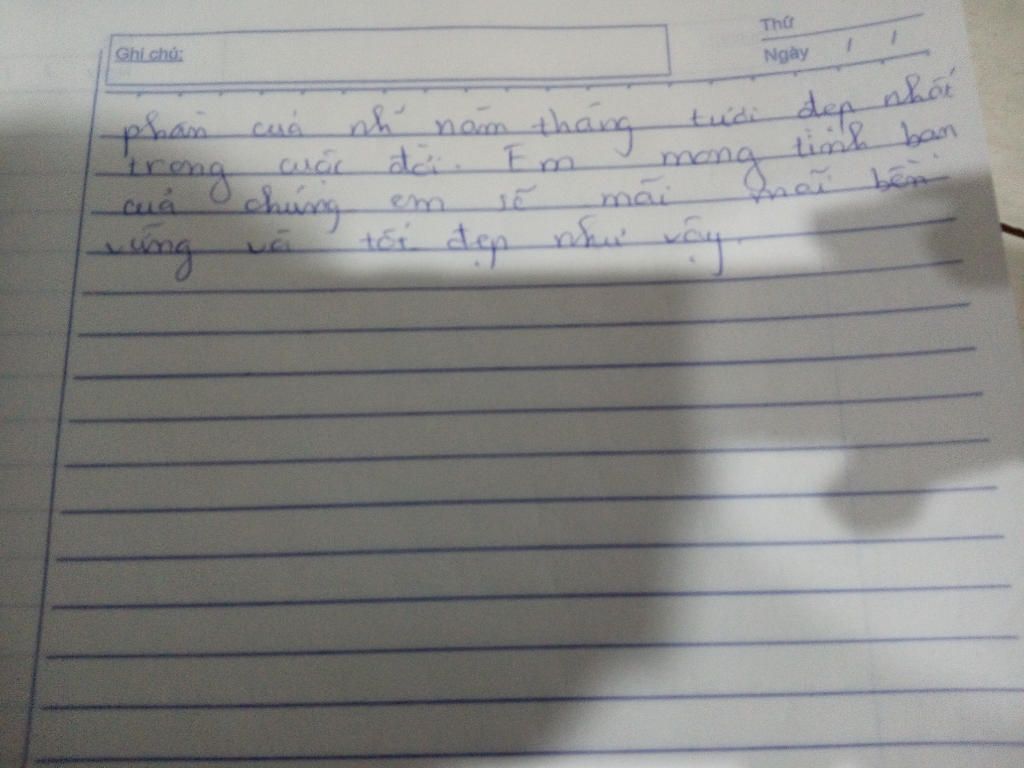 Ghi chú:
Thứ
Ngày / /
phần của những năm tháng tươi đẹp nhất
trong cuộc đời. Em mong tình bạn
của chúng em sẽ mãi mãi bền
vững và tốt đẹp như vậy.